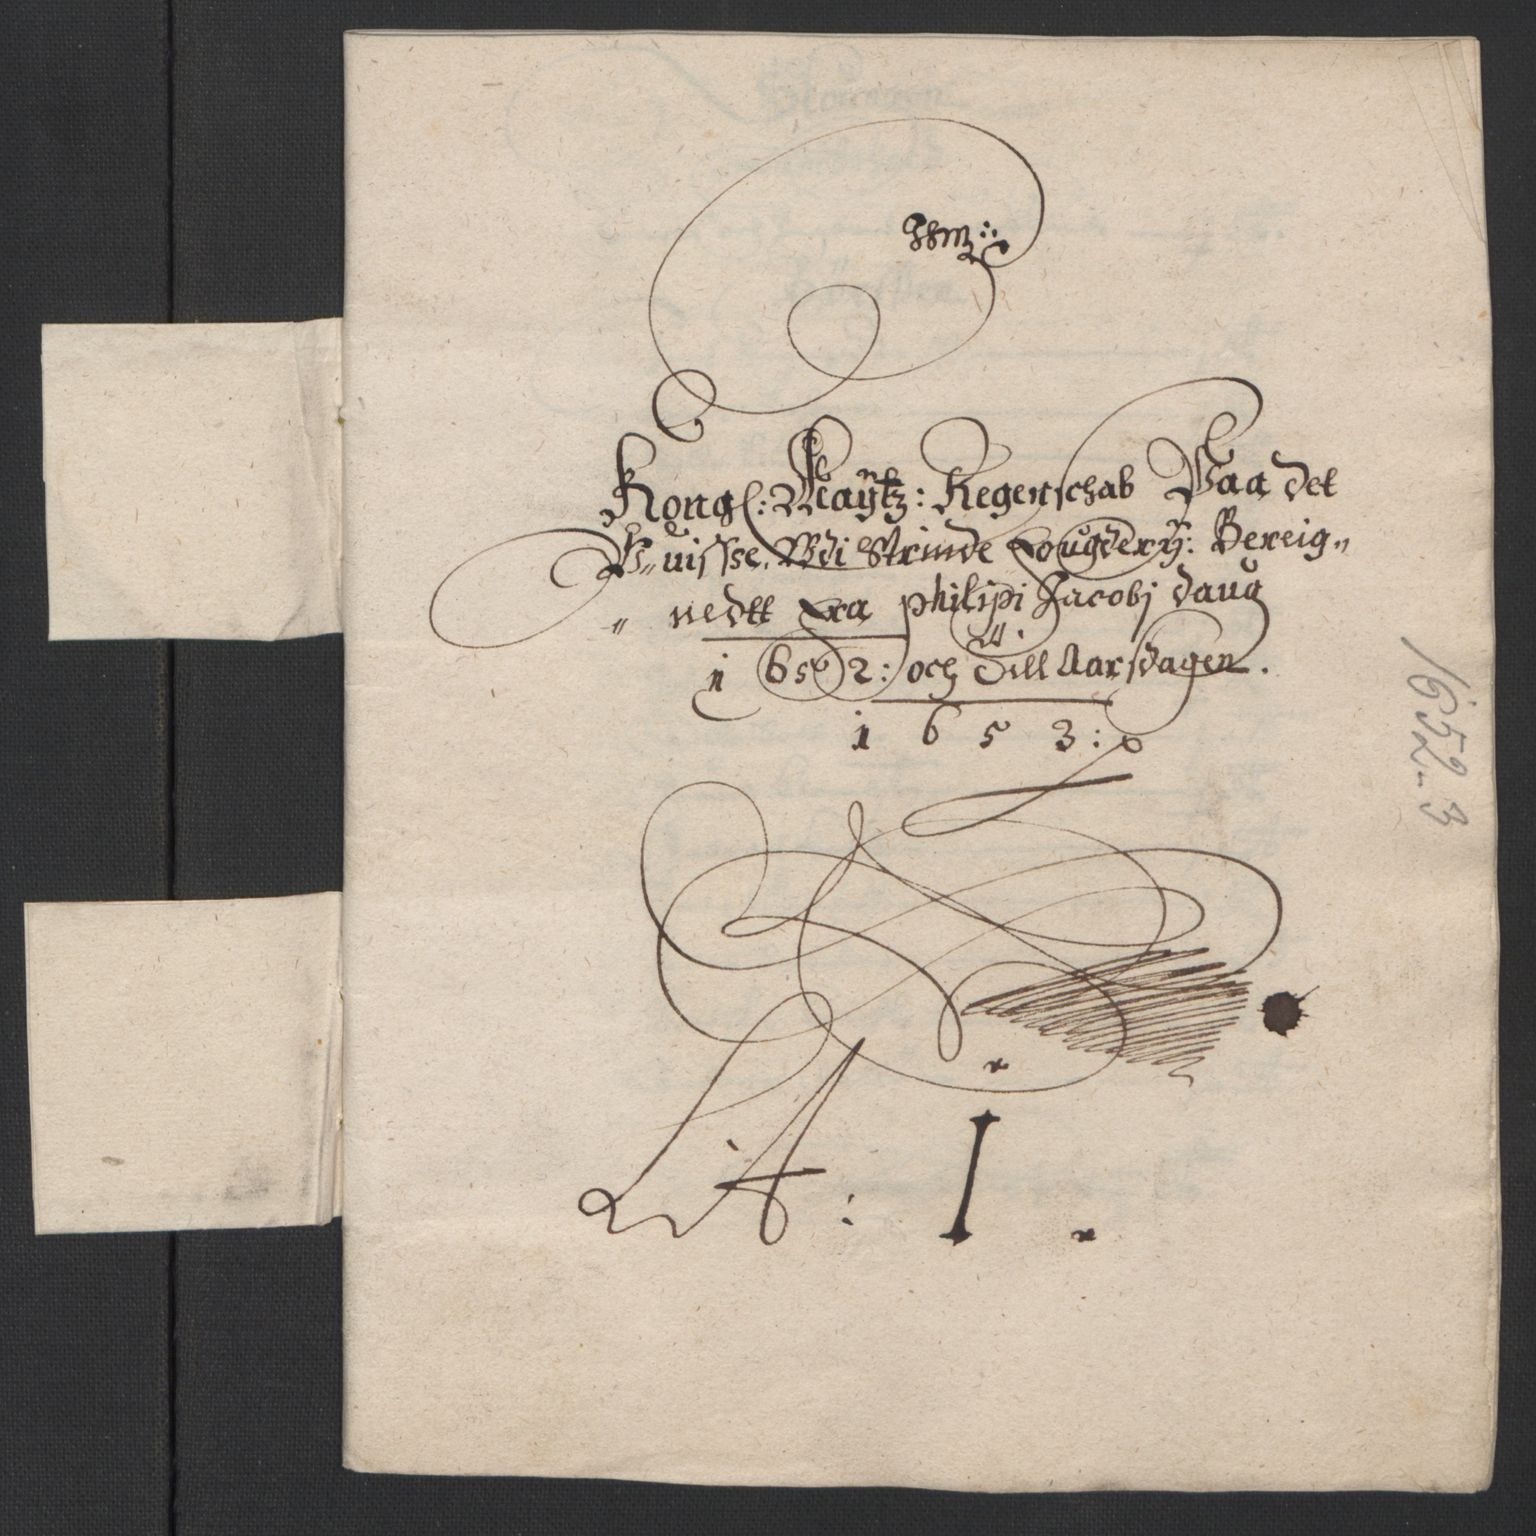 Kongl: Maÿtz: Regenschab Paa det
U„uisse. Udi Strinde Fougderÿ: Bereig„
„ nedtt Fra philipi Jacobj daug
1652: och Till Aarsdagen.
1653:
Lit A: I.
1652-3